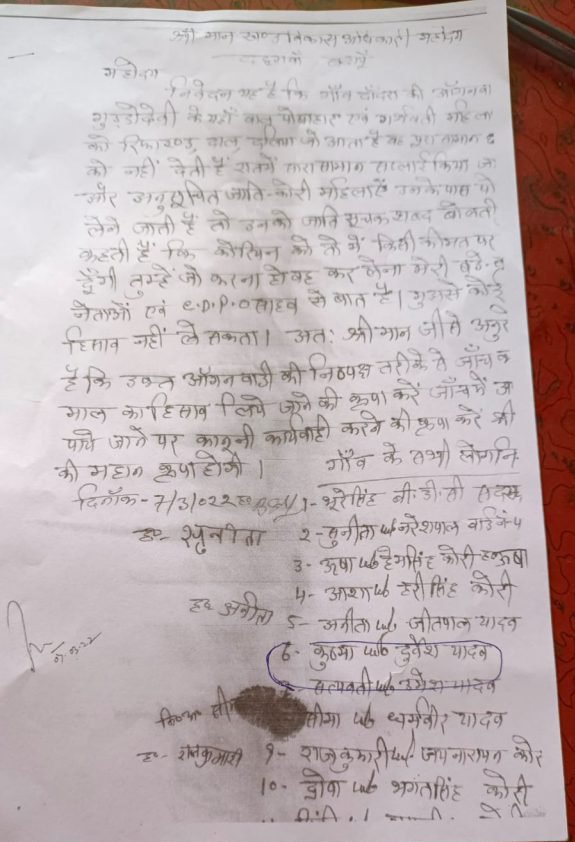 श्री मान खण्ड विकास अधिकारी
निवेदन यह है कि गाँव की आँगनबा
गुड्डोदेवी के यहाँ बाल पोषाहार एवं गर्भवती महिला
को दाल दलिया जो आता है वह पूरा सामान
को नहीं देती हैं रातमें सारा सामान सप्लाई किया जा
और अनुसूचित जाति-कोरी महिलाऐं उनके पास पो
लेने जाती हैं तो उनको जाति सूचक शब्द बोलती
कहती हैं कि कोरियन को तो मैं किसी कीमत पर
दूँगी तुम्हें जो करना हो वह कर लेना मेरी बड़े-
नेताओं एवं C.D.P.O साहब से बात है। मुझसे कोई
हिसाब नहीं ले सकता। अत: श्री मान जी से अनुरो
है कि उक्त आँगनवाडी की निष्पक्ष तरीके से जाँच क
माल का हिसाब लिये जाने की कृपा करें जाँच में
पाये जाने पर कानूनी कार्यवाही करने की कृपा करें श्री
की महान कृपा होगी।
गाँव के सभी लोगनि
दिनाँक - 7/3/022
1- भूरेसिंह बी.डी.सी सदस्य
ह०- सुनीता
२- सुनीता w/o नरेशपाल वार्ड नं-५
3- ऊषा w/o हेमसिंह कोरी ह०ऊषा
4- आशा w/o हरीसिंह कोरी
ह० अनीता
5- अनीता w/o जीतपाल यादव
6- w/o दुर्वेश यादव
सत्यवती w/o उमेश यादव
सीमा w/o धर्मवीर यादव
07.03.22
ह०- राजकुमारी
9- राजकुमारी w/o जयनारायन कोर
10- द्रोपा w/o भगतसिंह कोरी